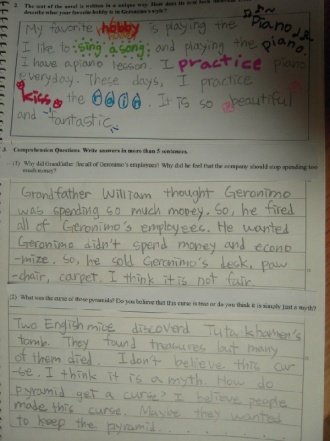 2. The text of the novel is written in a unique way. How does its text look
describe what your favorite hobby is in Geronimo's style?
My favorite hobby is playing the Piano
I like to sing a song and playing the piano.
I have a piano lesson. I practice piano
everyday. These days, I practice
kiss the rain. It is so beautiful
and fantastic.
3. Comprehension Questions. Write answers in more than 5 sentences.
(1) Why did Grandfather fire all of Geronimo's employees? Why did he feel that the company should stop spending too
much money?
Grandfather William thought Geronimo
was spending so much money. So, he fired
all of Geronimo's employees. He wanted
Geronimo didn't spend money and econo
-mize. So, he sold Geronimo's desk, paw
-chair, carpet. I think it is not fair.
(2) What was the curse of three pyramids? Do you believe that this curse is true or do you think it is simply just a myth?
Two English mice discoverd Tuta khamen's
tomb. They found treasures but many
of them died. I don't believe this cur
-se. I think it is a myth. How do
pyramid get a curse? I believe people
made this curse. Maybe they wanted
to keep the pyramid.